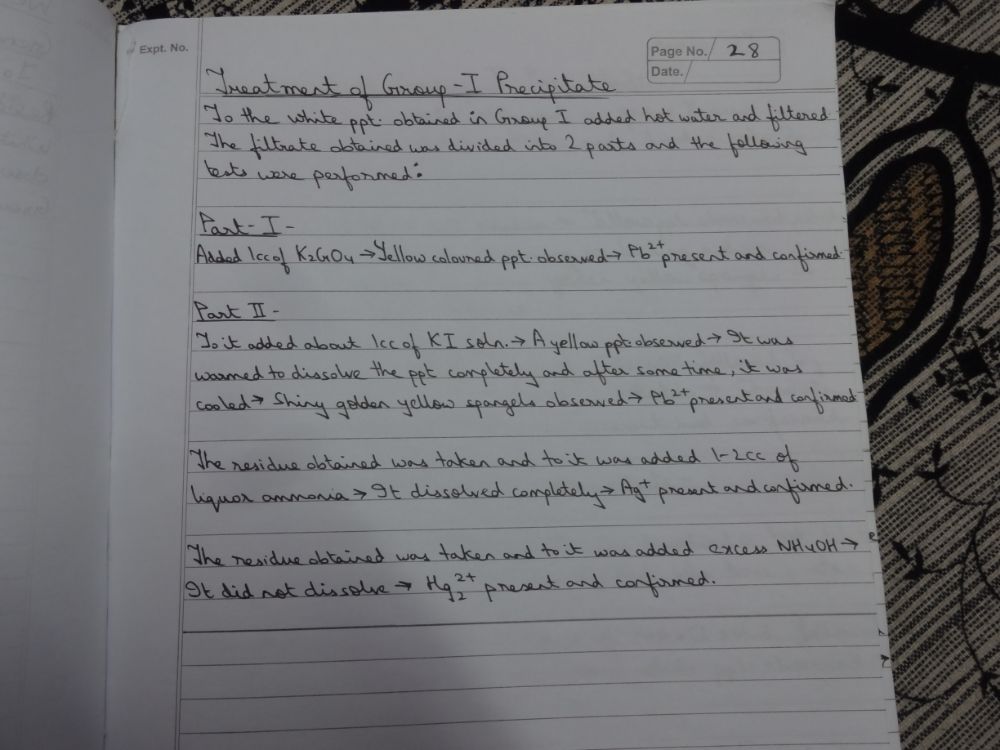 Expt. No.
Page No. 28
Date.
Treatment of Group-I Precipitate
To the white ppt. obtained in Group I added hot water and filtered
The filtrate obtained was divided into 2 parts and the following
tests were performed:
Part-I-
Added 1cc of K2CrO4 → Yellow coloured ppt. observed → Pb²⁺ present and confirmed
Part II -
To it added about 1cc of KI soln. → A yellow ppt observed → It was
warmed to dissolve the ppt completely and after some time, it was
cooled → Shiny golden yellow spangels observed → Pb²⁺ present and confirmed
The residue obtained was taken and to it was added 1-2cc of
liquor ammonia → It dissolved completely → Ag⁺ present and confirmed.
The residue obtained was taken and to it was added excess NH4OH →
It did not dissolve → Hg₂²⁺ present and confirmed.